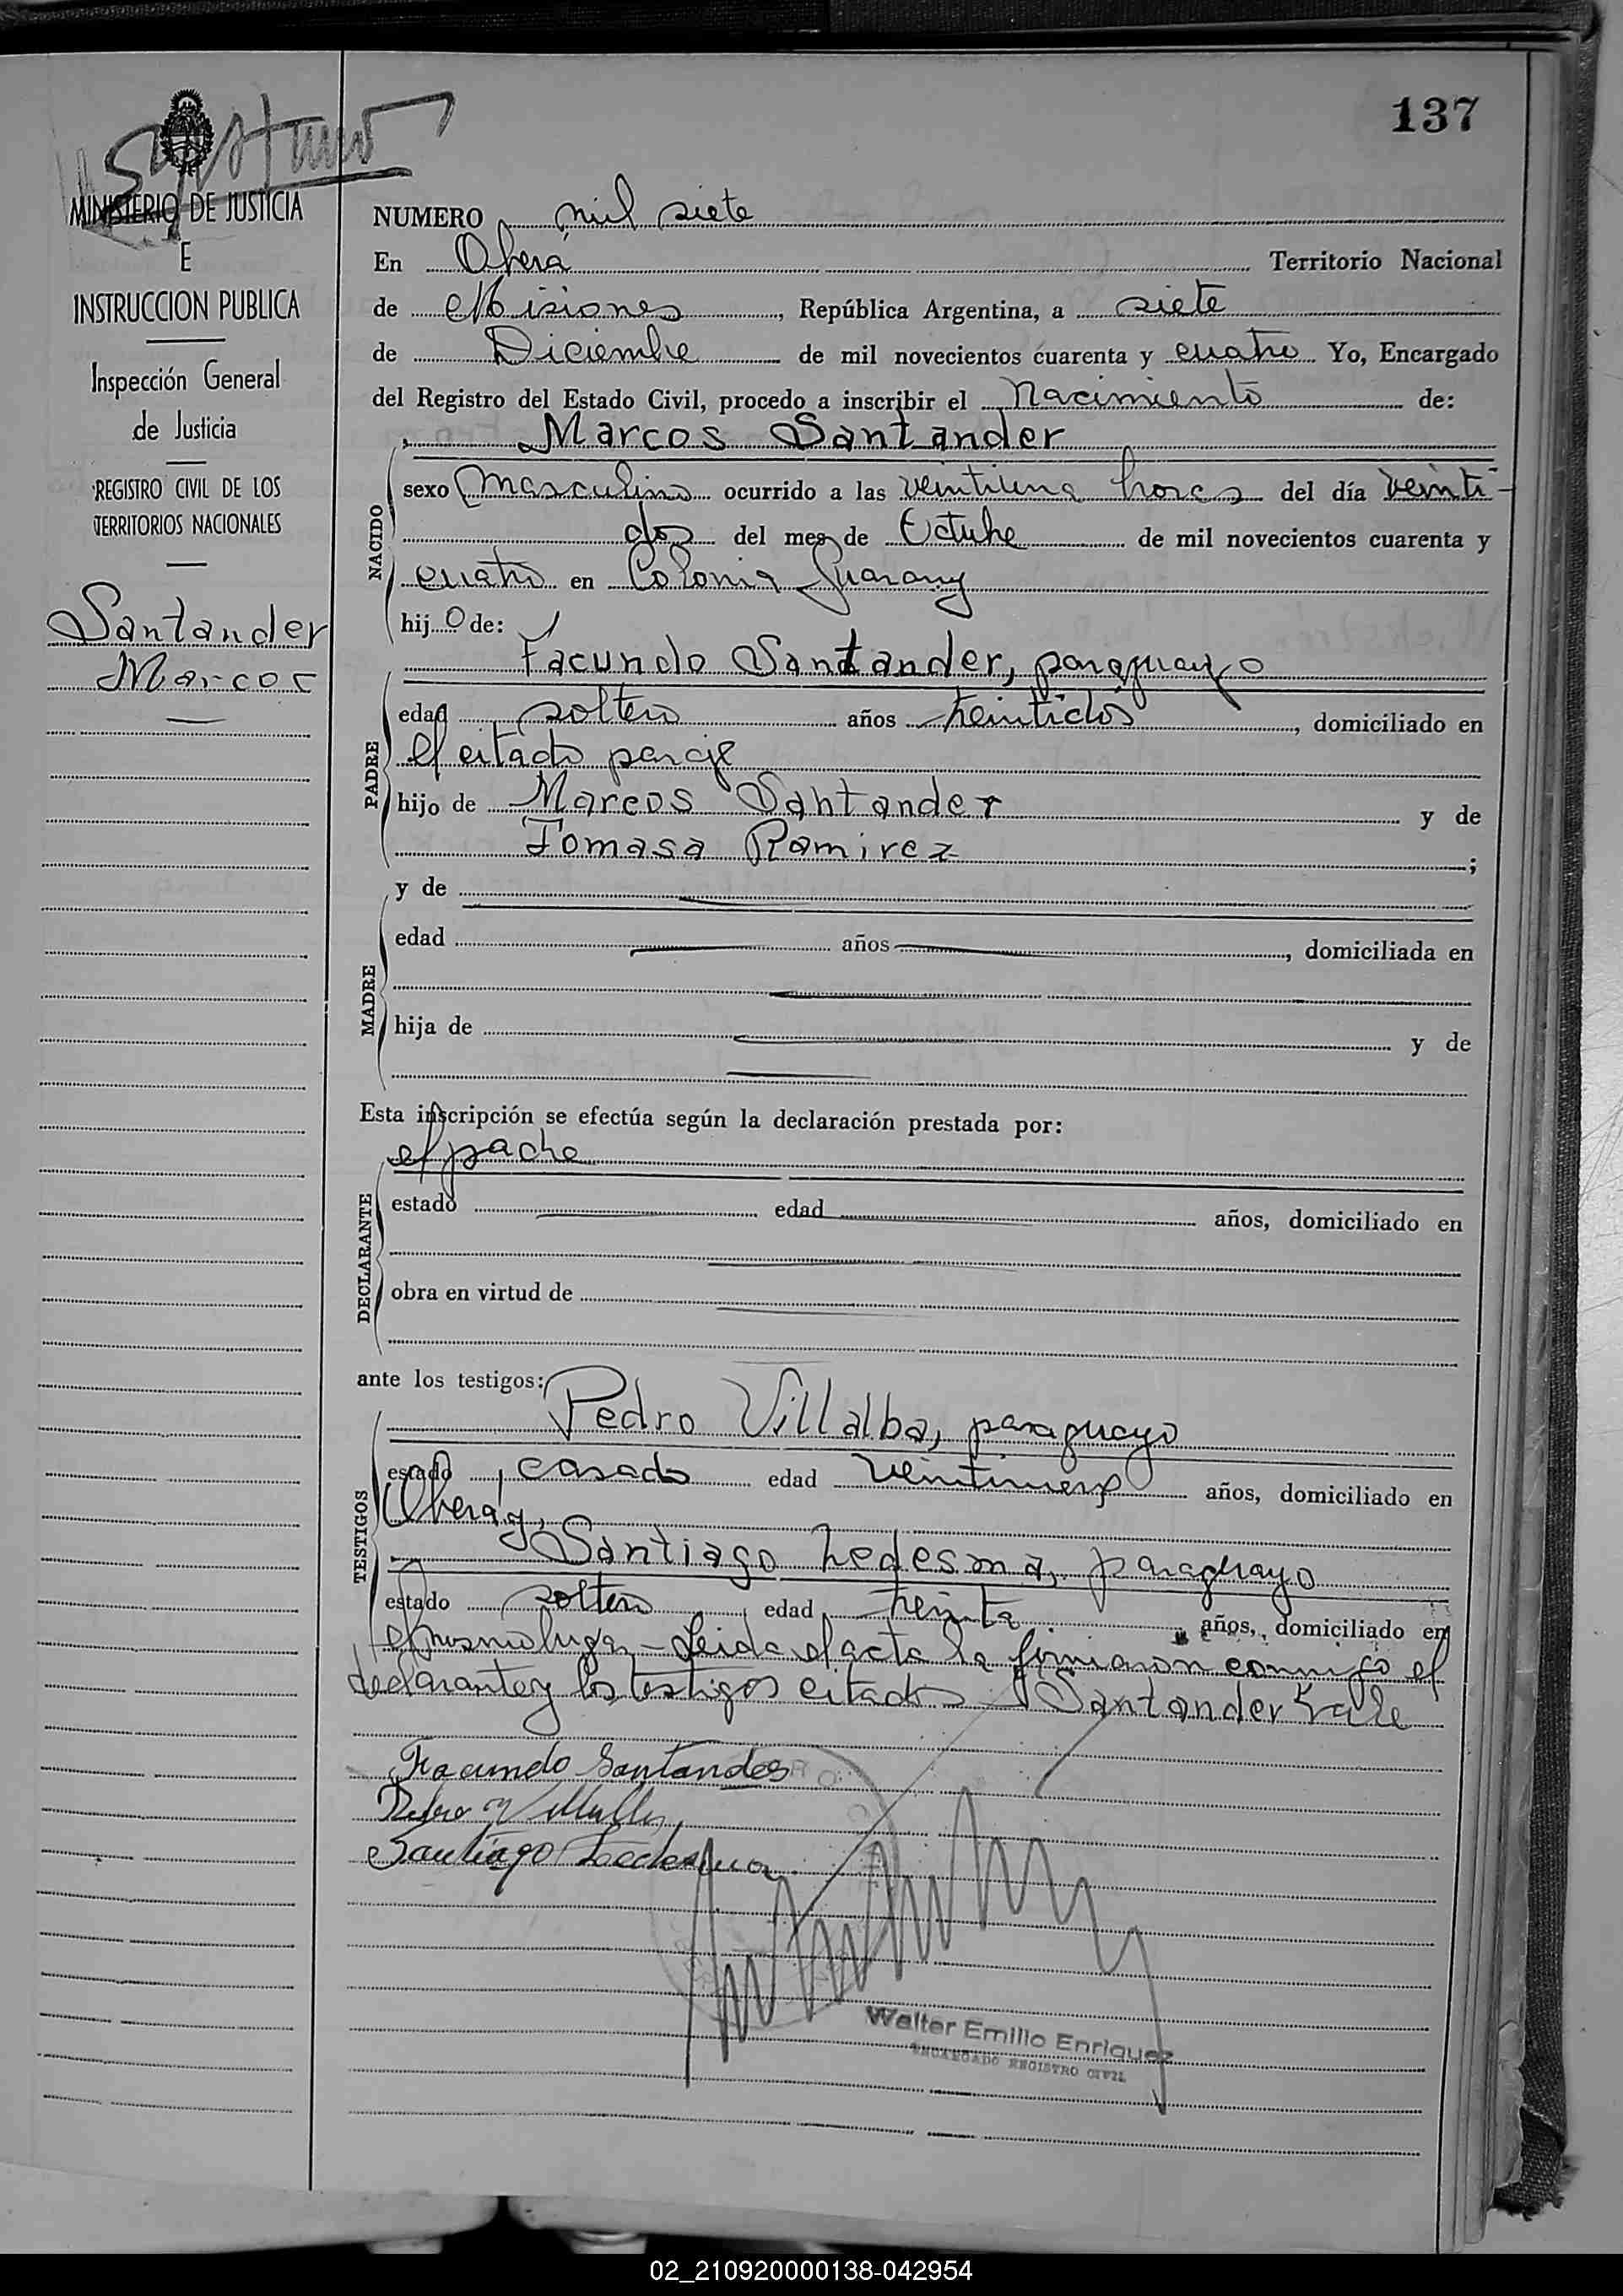 137
MINISTERIO DE JUSTICIA
E
INSTRUCCION PUBLICA
Inspección General
de Justicia
REGISTRO CIVIL DE LOS
TERRITORIOS NACIONALES
Santander
Marcos
NUMERO mil siete
En Oberá Territorio Nacional
de Misiones, República Argentina, a siete
de Diciembre de mil novecientos cuarenta y cuatro Yo, Encargado
del Registro del Estado Civil, procedo a inscribir el Nacimiento de:
Marcos Santander
NACIDO
sexo masculino ocurrido a las veintiuna horas del día veinti-
dos del mes de Octubre de mil novecientos cuarenta y
cuatro en Colonia Guarany
hijo de:
Facundo Santander, paraguayo
PADRE
edad, soltero años treintidos, domiciliado en
el citado paraje
hijo de Marcos Santander y de
Tomasa Ramirez;
y de
MADRE
edad años, domiciliada en
hija de y de
Esta inscripción se efectúa según la declaración prestada por:
el padre
DECLARANTE
estado edad años, domiciliado en
obra en virtud de
ante los testigos:
Pedro Villalba, paraguayo
TESTIGOS
estado, casado edad veintinueve años, domiciliado en
Oberá y,
Santiago Ledesma, paraguayo
estado soltero, edad, treinta años, domiciliado en
el mismo lugar - Leida el acta la firmaron conmigo el
declarante y los testigos citados Santander Vale
Facundo Santander
Pedro Villalba
Santiago Ledesma
Walter Emilio Enriquez
ENCARGADO REGISTRO CIVIL
02_210920000138-042954